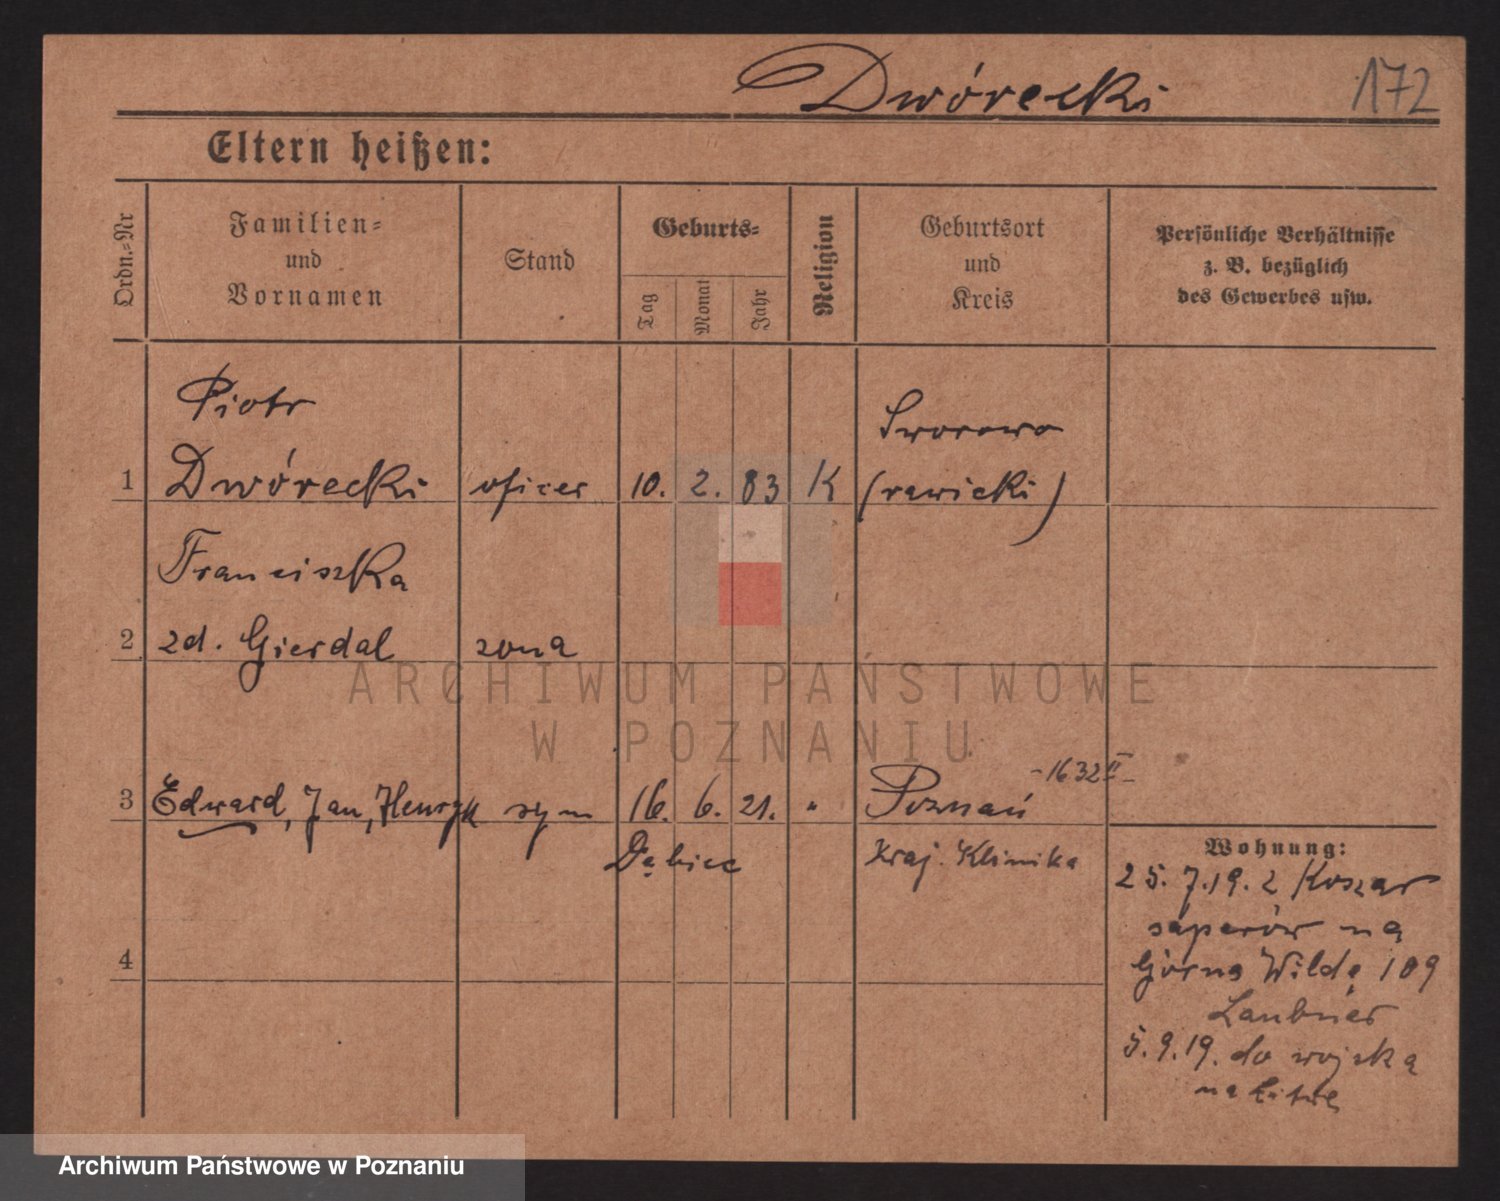 Dwórecki 172
Eltern heißen:
Ordn.-Nr
Familien-
und
Vornamen
Stand
Geburts-
Tag
Monat
Jahr
Religion
Geburtsort
und
Kreis
Persönliche Verhältnisse
z. B. bezüglich
des Gewerbes usw.
Piotr
Sworowo
1 Dwórecki oficer 10. 2. 83 K (rawicki)
Franciszka
2 zd. Gierdal zona
-1632 II-
3 Edward, Jan, Henryk syn 16. 6. 21. " Poznań
Dębiec Kraj. Klinika
Wohnung:
25. 7.19. z Koszar
saperów na
4
Górną Wildę 109
Laubner
5.9.19. do wojska
na Litwę
ARCHIWUM PAŃSTWOWE
W POZNANIU
Archiwum Państwowe w Poznaniu